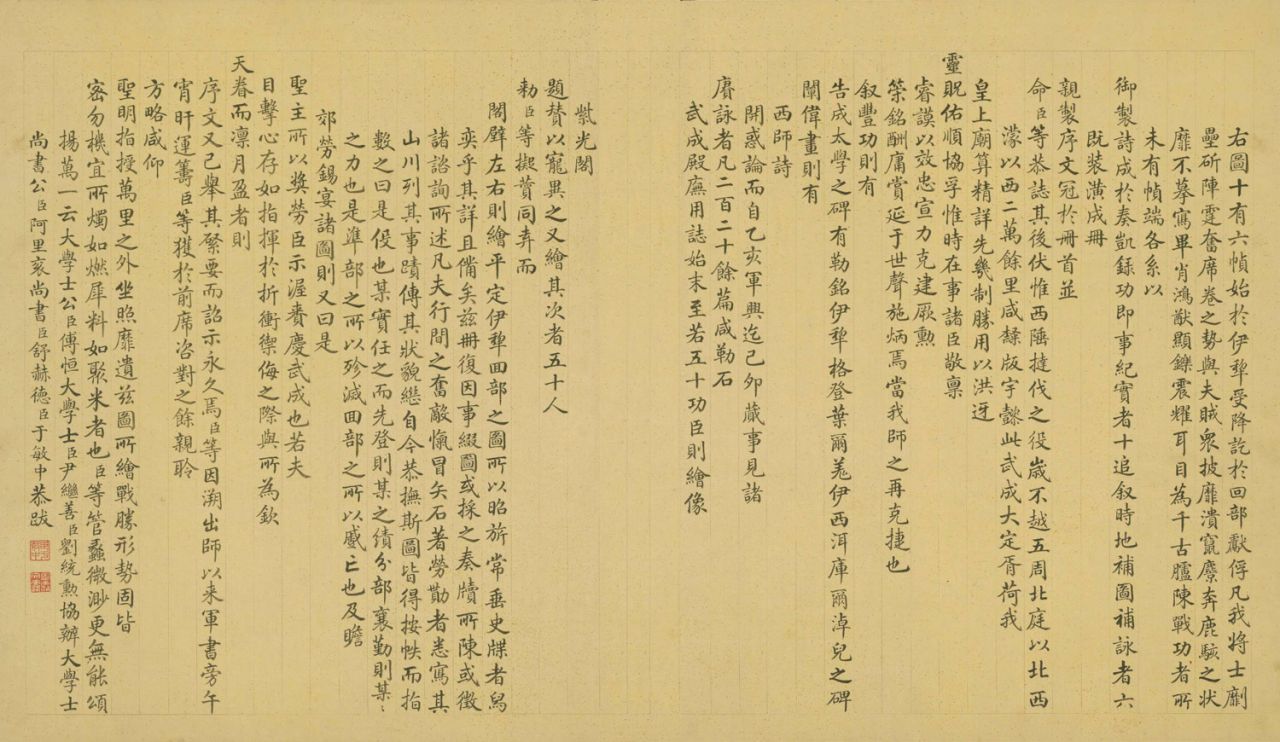 右圖十有六幀始於伊犂受降訖於回部獻俘凡我將士劘
壘斫陣霆奮席卷之勢與夫賊衆披靡潰竄麏奔鹿駭之狀
靡不摹寫畢肖鴻猷顯鑠震耀耳目為千古臚陳戰功者所
未有幀端各系以
御製詩成於奏凱錄功即事紀實者十追叙時地補圖補詠者六
既裝潢成冊
親製序文冠於冊首並
命臣等恭誌其後伏惟西陲撻伐之役歲不越五周北庭以北西
濛以西二萬餘里咸隸版宇繇此武成大定胥荷我
皇上廟算精詳先幾制勝用以洪迓
靈貺佑順協孚惟時在事諸臣敬稟
睿謨以效忠宣力克建厥勲
築銘酬庸賞延于世聲施炳焉當我師之再克捷也
叙豐功則有
告成太學之碑有勒銘伊犂格登葉爾羌伊西洱庫爾淖兒之碑
闡偉畫則有
西師詩
開惑論而自乙亥軍興迄己卯蕆事見諸
賡詠者凡二百二十餘篇咸勒石
武成殿廡用誌始末至若五十功臣則繪像
紫光閣
題賛以寵異之又繪其次者五十人
勑臣等擬賛同弆而
閣壁左右則繪平定伊犂回部之圖所以昭旂常垂史牒者舄
奕乎其詳且備矣兹冊復因事綴圖或採之奏牘所陳或徵
諸諮詢所述凡夫行間之奮敵愾冒矢石著勞勩者悉寫其
山川列其事蹟傳其狀貌繼自今恭撫斯圖皆得按帙而指
數之曰是役也某實任之而先登則某之績分部襄勤則某〻
之力也是準部之所以殄滅回部之所以慼亡也及瞻
郊勞錫宴諸圖則又曰是
聖主所以獎勞臣示渥賚慶武成也若夫
目擊心存如指揮於折衝禦侮之際與所為欽
天眷而凛月盈者則
序文又已舉其綮要而詔示永久焉臣等因溯出師以来軍書旁午
宵旰運籌臣等獲於前席咨對之餘親聆
方略咸仰
聖明指授萬里之外坐照靡遺兹圖所繪戰勝形勢固皆
密勿機宜所燭如燃犀料如聚米者也臣等管蠡微渺更無能頌
揚萬一云大學士公臣傅恒大學士臣尹繼善臣劉統勲協辦大學士
尚書公臣阿里衮尚書臣舒赫德臣于敏中恭跋